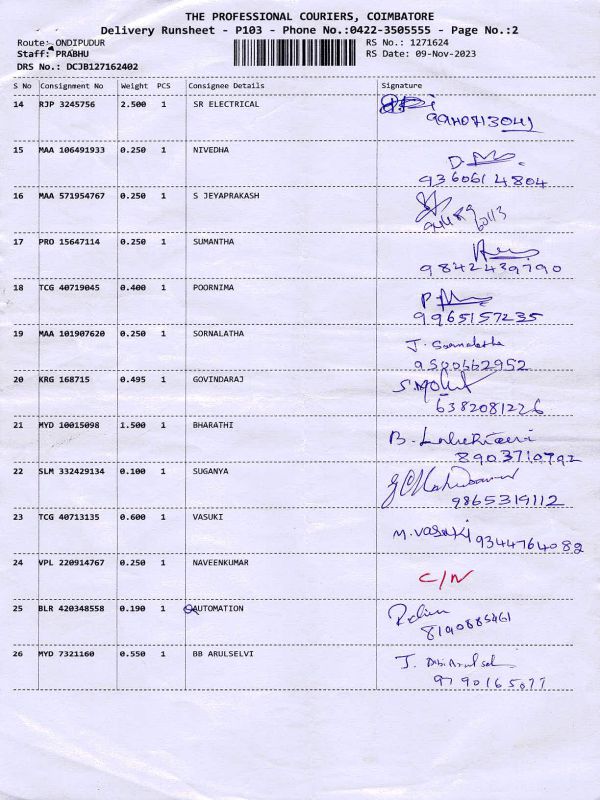 THE PROFESSIONAL COURIERS, COIMBATORE
Delivery Runsheet - P103 - Phone No.:0422-3505555 - Page No.:2
Route: ONDIPUDUR RS No.: 1271624
Staff: PRABHU RS Date: 09-Nov-2023
DRS No.: DCJB127162402
S No Consignment No Weight PCS Consignee Details Signature
14 RJP 3245756 2.500 1 SR ELECTRICAL
15 MAA 106491933 0.250 1 NIVEDHA
9360614804
16 MAA 571954767 0.250 1 S JEYAPRAKASH
17 PRO 15647114 0.250 1 SUMANTHA
9842439790
18 TCG 40719045 0.400 1 POORNIMA
9965157235
19 MAA 101907620 0.250 1 SORNALATHA J. Sornalatha
9500662952
20 KRG 168715 0.495 1 GOVINDARAJ
6382081226
21 MYD 10015098 1.500 1 BHARATHI B.
8903710792
22 SLM 332429134 0.100 1 SUGANYA
9865319112
23 TCG 40713135 0.600 1 VASUKI M. VASUKI 9344764082
24 VPL 220914767 0.250 1 NAVEENKUMAR C/N
25 BLR 420348558 0.190 1 AUTOMATION
8190885461
26 MYD 7321160 0.550 1 BB ARULSELVI J.
9790165077